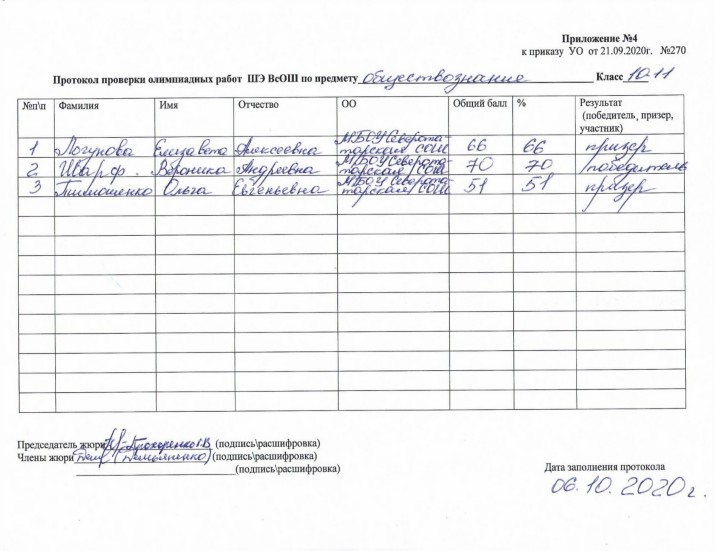 Приложение №4
к приказу УО от 21.09.2020г. №270
Протокол проверки олимпиадных работ ШЭ ВсОШ по предмету обществознание Класс 10-11
№п\п Фамилия Имя Отчество ОО Общий балл % Результат (победитель, призер, участник)
1 Логунова Елизавета Алексеевна МБОУ Северота-тарская СОШ 66 66 призер
2 Шварф Вероника Андреевна МБОУ Северота-тарская СОШ 70 70 победитель
3 Тимошенко Ольга Евгеньевна МБОУ Северота-тарская СОШ 51 51 призер
Председатель жюри Прохоренко (подпись\расшифровка)
Члены жюри (Демьяненко) (подпись\расшифровка)
(подпись\расшифровка)
Дата заполнения протокола
06.10.2020г.